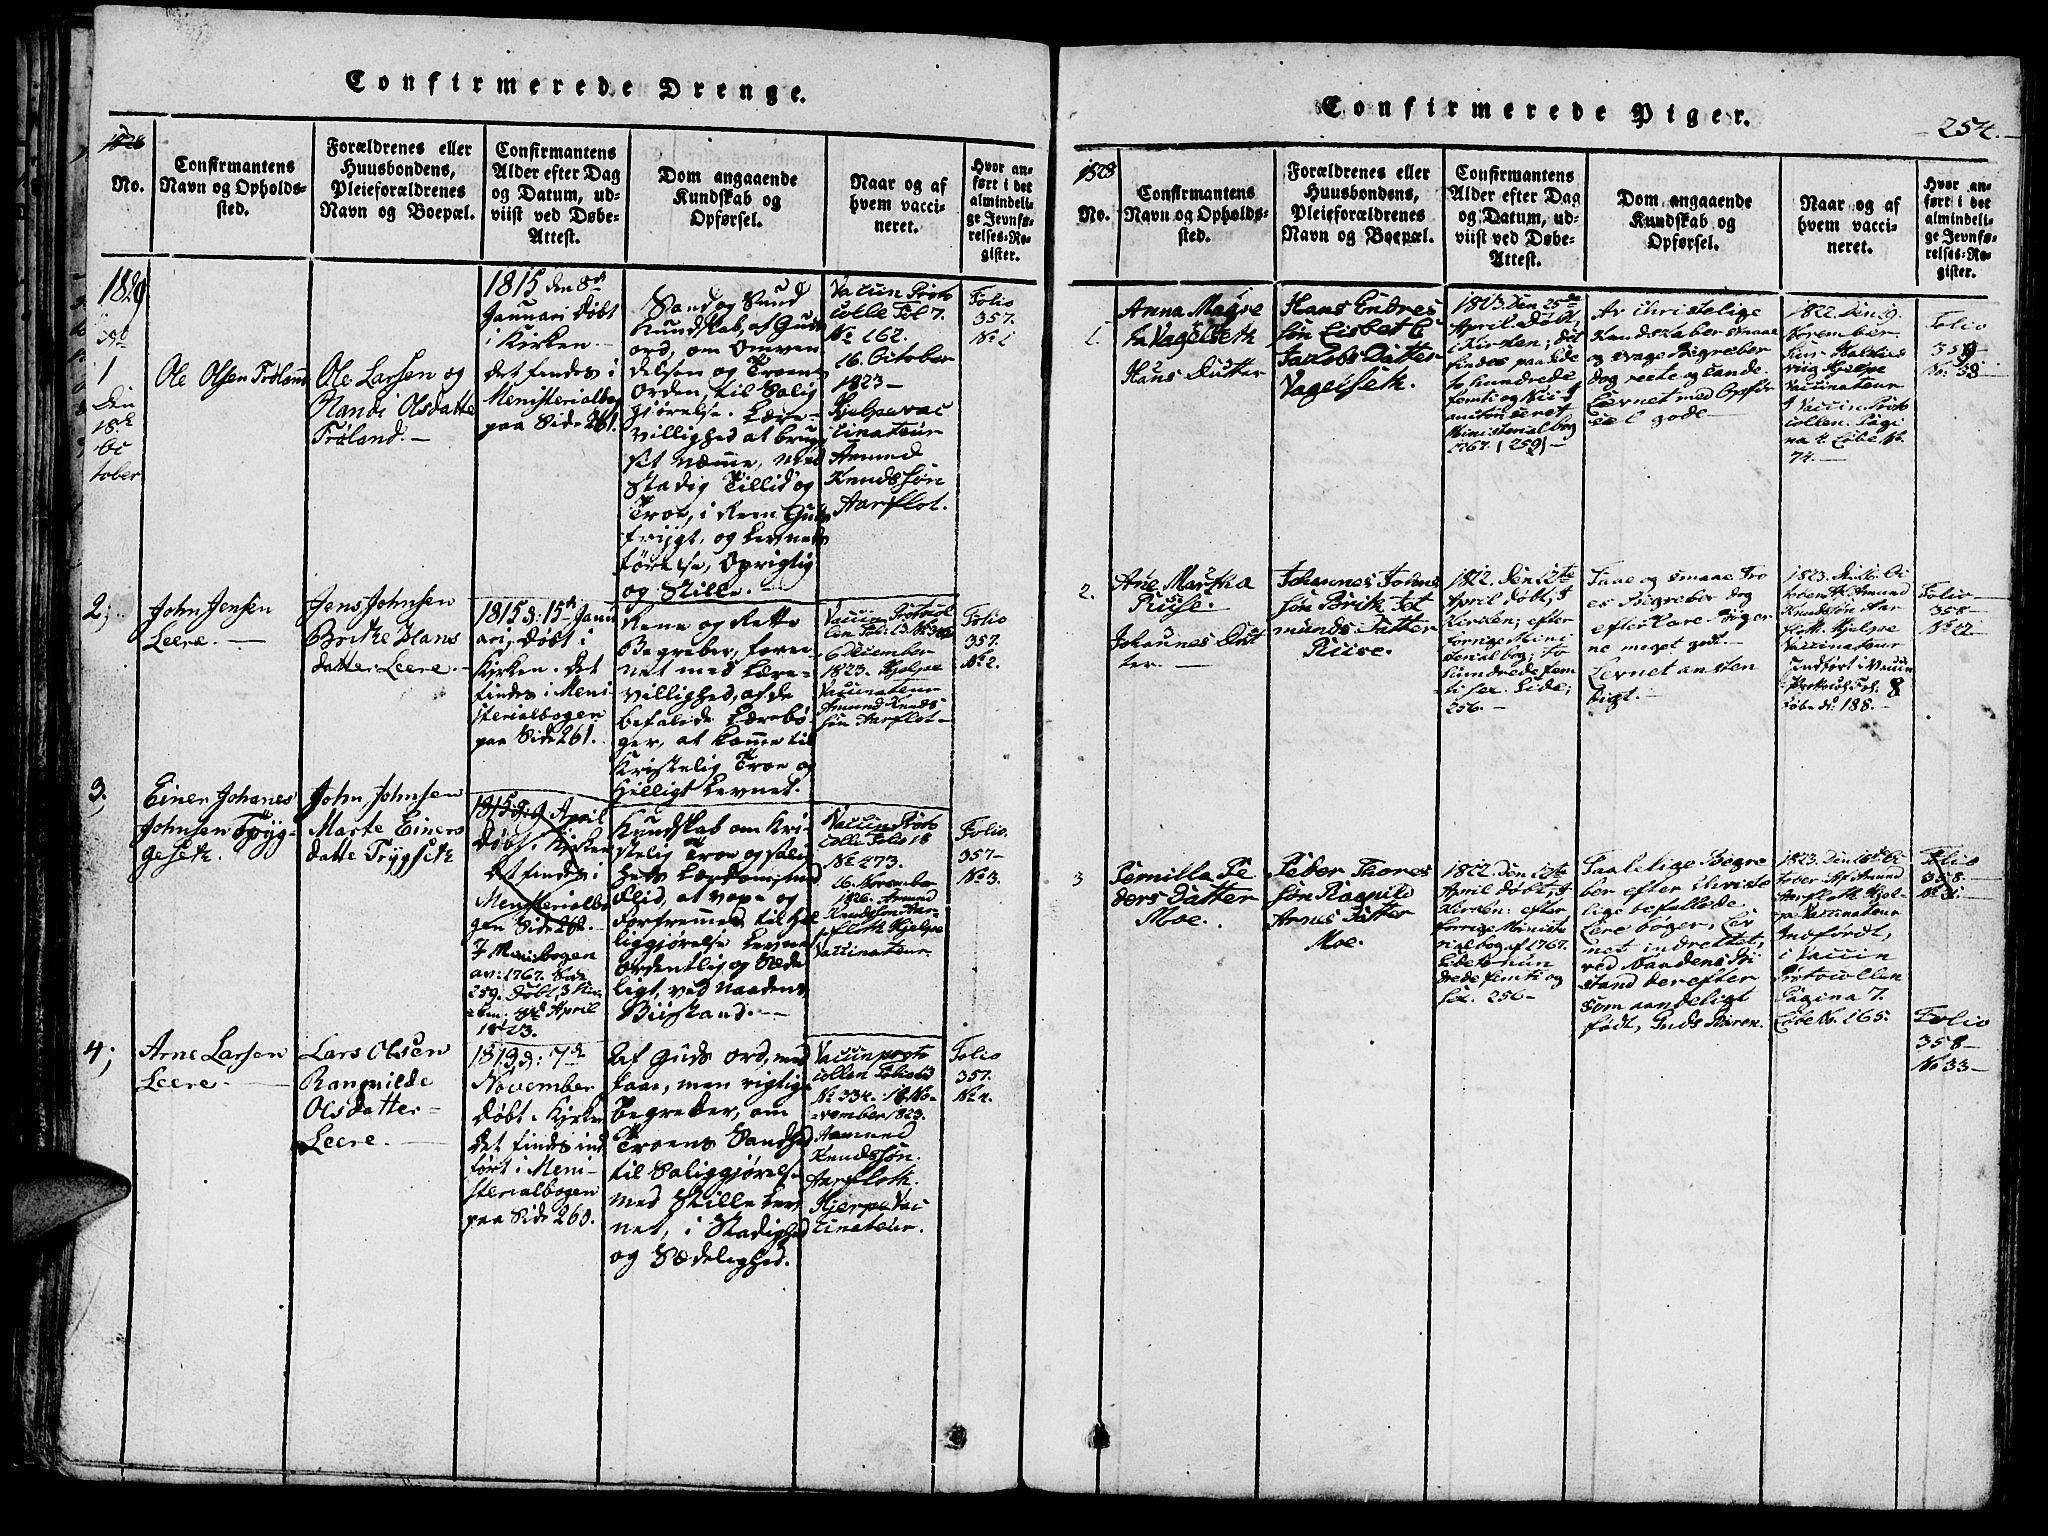 Confirmerede Drenge.
1828
No.
Confirmantens
Navn og Opholds-
sted.
Forældrenes eller
Huusbondens,
Pleieforældrenes
Navn og Boepæl.
Confirmantens
Alder efter Dag
og Datum, ud-
viist ved Døbe-
Attest.
Dom angaaende
Kundskab og
Opførsel.
Naar og af
hvem vacci-
neret.
Hvor an-
ført i det
almindeli-
ge Jevnfø-
relses-Re-
gister.
1829
No
1
Den
18de
Oc
tober
Ole Olsen Trøland
Ole Larsen og
Randi Olsdatte
Trøland.—
1815 den 8de
Januari Døbt
i Kirken.—
det findes i
Menisterialbog
paa Side 261.
Sand og Sund
Kundskab, af Guds
ord, om Omven
delsen og Troens
Orden, til Salig
gjørelse. Lære-
villighed at brug
sit Næmme, med
Stadig Tillid og
Troe, i Reen Guds
frygt, og Levnets
førelse, Oprigtig
og Stille.—
Vaccin Proto
colle Fol 7.
No 162.
16. October
1823—
Hjelpevac
cinateur
Amund
Knudssøn
Aarflot.
Folio
357.
No 1
2;
John Jensen
Leere.—
Jens Johnsen
Brithe Hans
datter Leere.—
1815 d: 15de Janu
ari, Døbt i
Kirken. Det
findes i Meni
sterialbogen
paa Side 261.
Rene og Rette
Begreber, fore-
net med Lære-
villighed, af de
befalede Lærebø-
ger, at komme til
Kristelig Troe og
Helligt Levnet.
6 December
1823. Hjelpe
Vaccinateur
Amund Knuds
søn Aarflot-
Folio
357.
No 2.
3.
Einer Johanes
Johnsen Tryg-
geseth.
John Johnsen
Marte Einers
datte Trygseth
1815 d: 9 April
Døbt i Kirken
det findes i
Menisterialbo
gen Side 262.
I Menibogen
av: 1767. Side
259. Døbt, i Kir
ken: 9de April
1813.
Kundskab om Kri-
stelig Troe og Salig
heds Lærdom, med
Flid, at voxe og
Forfremmes til Hel
liggjørelse Levne
ordentlig og Sæde
ligt, ved Naadens
Biistand.—
Vaccin Proto
colle Folio 18
No 273.
16. November
1826. Amund
Knudssøn Aar-
floth Hjelpe
Vaccinateur.
Folio.
357—
No 3.
4;
Arne Larsen
Leere.—
Lars Olsen
Rangnilde
Olsdatter-
Leere.—
1813 d: 7de
November
Døbt i Kjrke
det findes ind
ført i Meni-
sterialbogen
paa Side 260.
Af Guds ord, med
faae, men rigtige
Begreber, om
Troens Sandhed
til Saliggjørelse
med Stille Lev
net, i Stadighed
og Sædelighed.
Vaccinproto
collen Folio 13
No 334. 18. No-
vember 1823.
Aamund
Knudssøn.
Aarfloth.
Hjelpe Vac
cinateur.
Folio
357.
No 4.
Confirmerede Piger.
254.
1828
No.
Confirmantens
Navn og Opholds-
sted.
Forældrenes eller
Huusbondens,
Pleieforældrenes
Navn og Boepæl.
Confirmantens
Alder efter Dag
og Datum, ud-
viist ved Døbe-
Attest.
Dom angaaende
Kundskab og
Opførsel.
Naar og af
hvem vacci-
neret.
Hvor an-
ført i det
almindeli-
ge Jevnfø-
relses-Re-
gister.
1.
Anna Magre
ta Vagelseth
Hans Datter
Hans Endres
søn Lisbet
Jacobs Datter
Vagelseth.
1813 Den 25de
April Døbt,
i Kirken; det
findes paa Side
to hundrede
femti og Ni
Ministerial bog
1767. (259)—
Av christelige
Kundskaber smaae
og svage Begreber
dog reete og sande.
Levnet med Opfør
sel gode—
1822. Den 19.
November
Vaccinateur
I Vaccin. Proto
collen. Pagi
na 4. Løbe No
74.—
Folio
359
No. 38
2.
Ane Martha
Riise.
Johannes Dat
ter.—
Johannes Jodens
søn Brith Jet
munds Datter
Riise.
1812. Den 12te
April Døbt, I
Kirken; efter
forrige Mini
sterial bog; to
hundrede fem
ti sex. Side;
256.—
Faae og smaae Tro
es Begreber dog
efter Lære Bøger
ne meget godt.
Levnet anstæn
digt.
1823. Den 16. Oc
tober Af Amund
Knudsøn Aar
floth. Hjelpe
Vaccinateur
Indført i Vaccin
Protocol Fol. 8
Løbe No. 188.—
Folio—
358—
3
Pernilla Pe
ders Datter
Moe.
Peder Thores
søn Ragnild
Arnes Datter
Moe.
1812 Den 12te
April Døbt, I
Kirken: efter
forrige Ministe
rial bog af 1767.
Side to hun
drede femti og
sex. 256—
Taalelige Begre
ber efter Christe
lige befallede
Lære bøger, Lev
net indrettet,
ved Naadens Bi
stand derefter
som aandeligt
født, Guds Børn.
1823. Den 16de Oc
tober Af Amund
Aarfloth Hjel-
pe Vaccinateur
Indført,
i Vaccin
Protocollen
Pagina 7.
Løbe No. 165.
Folio
358—
Folio
358—
No 33—